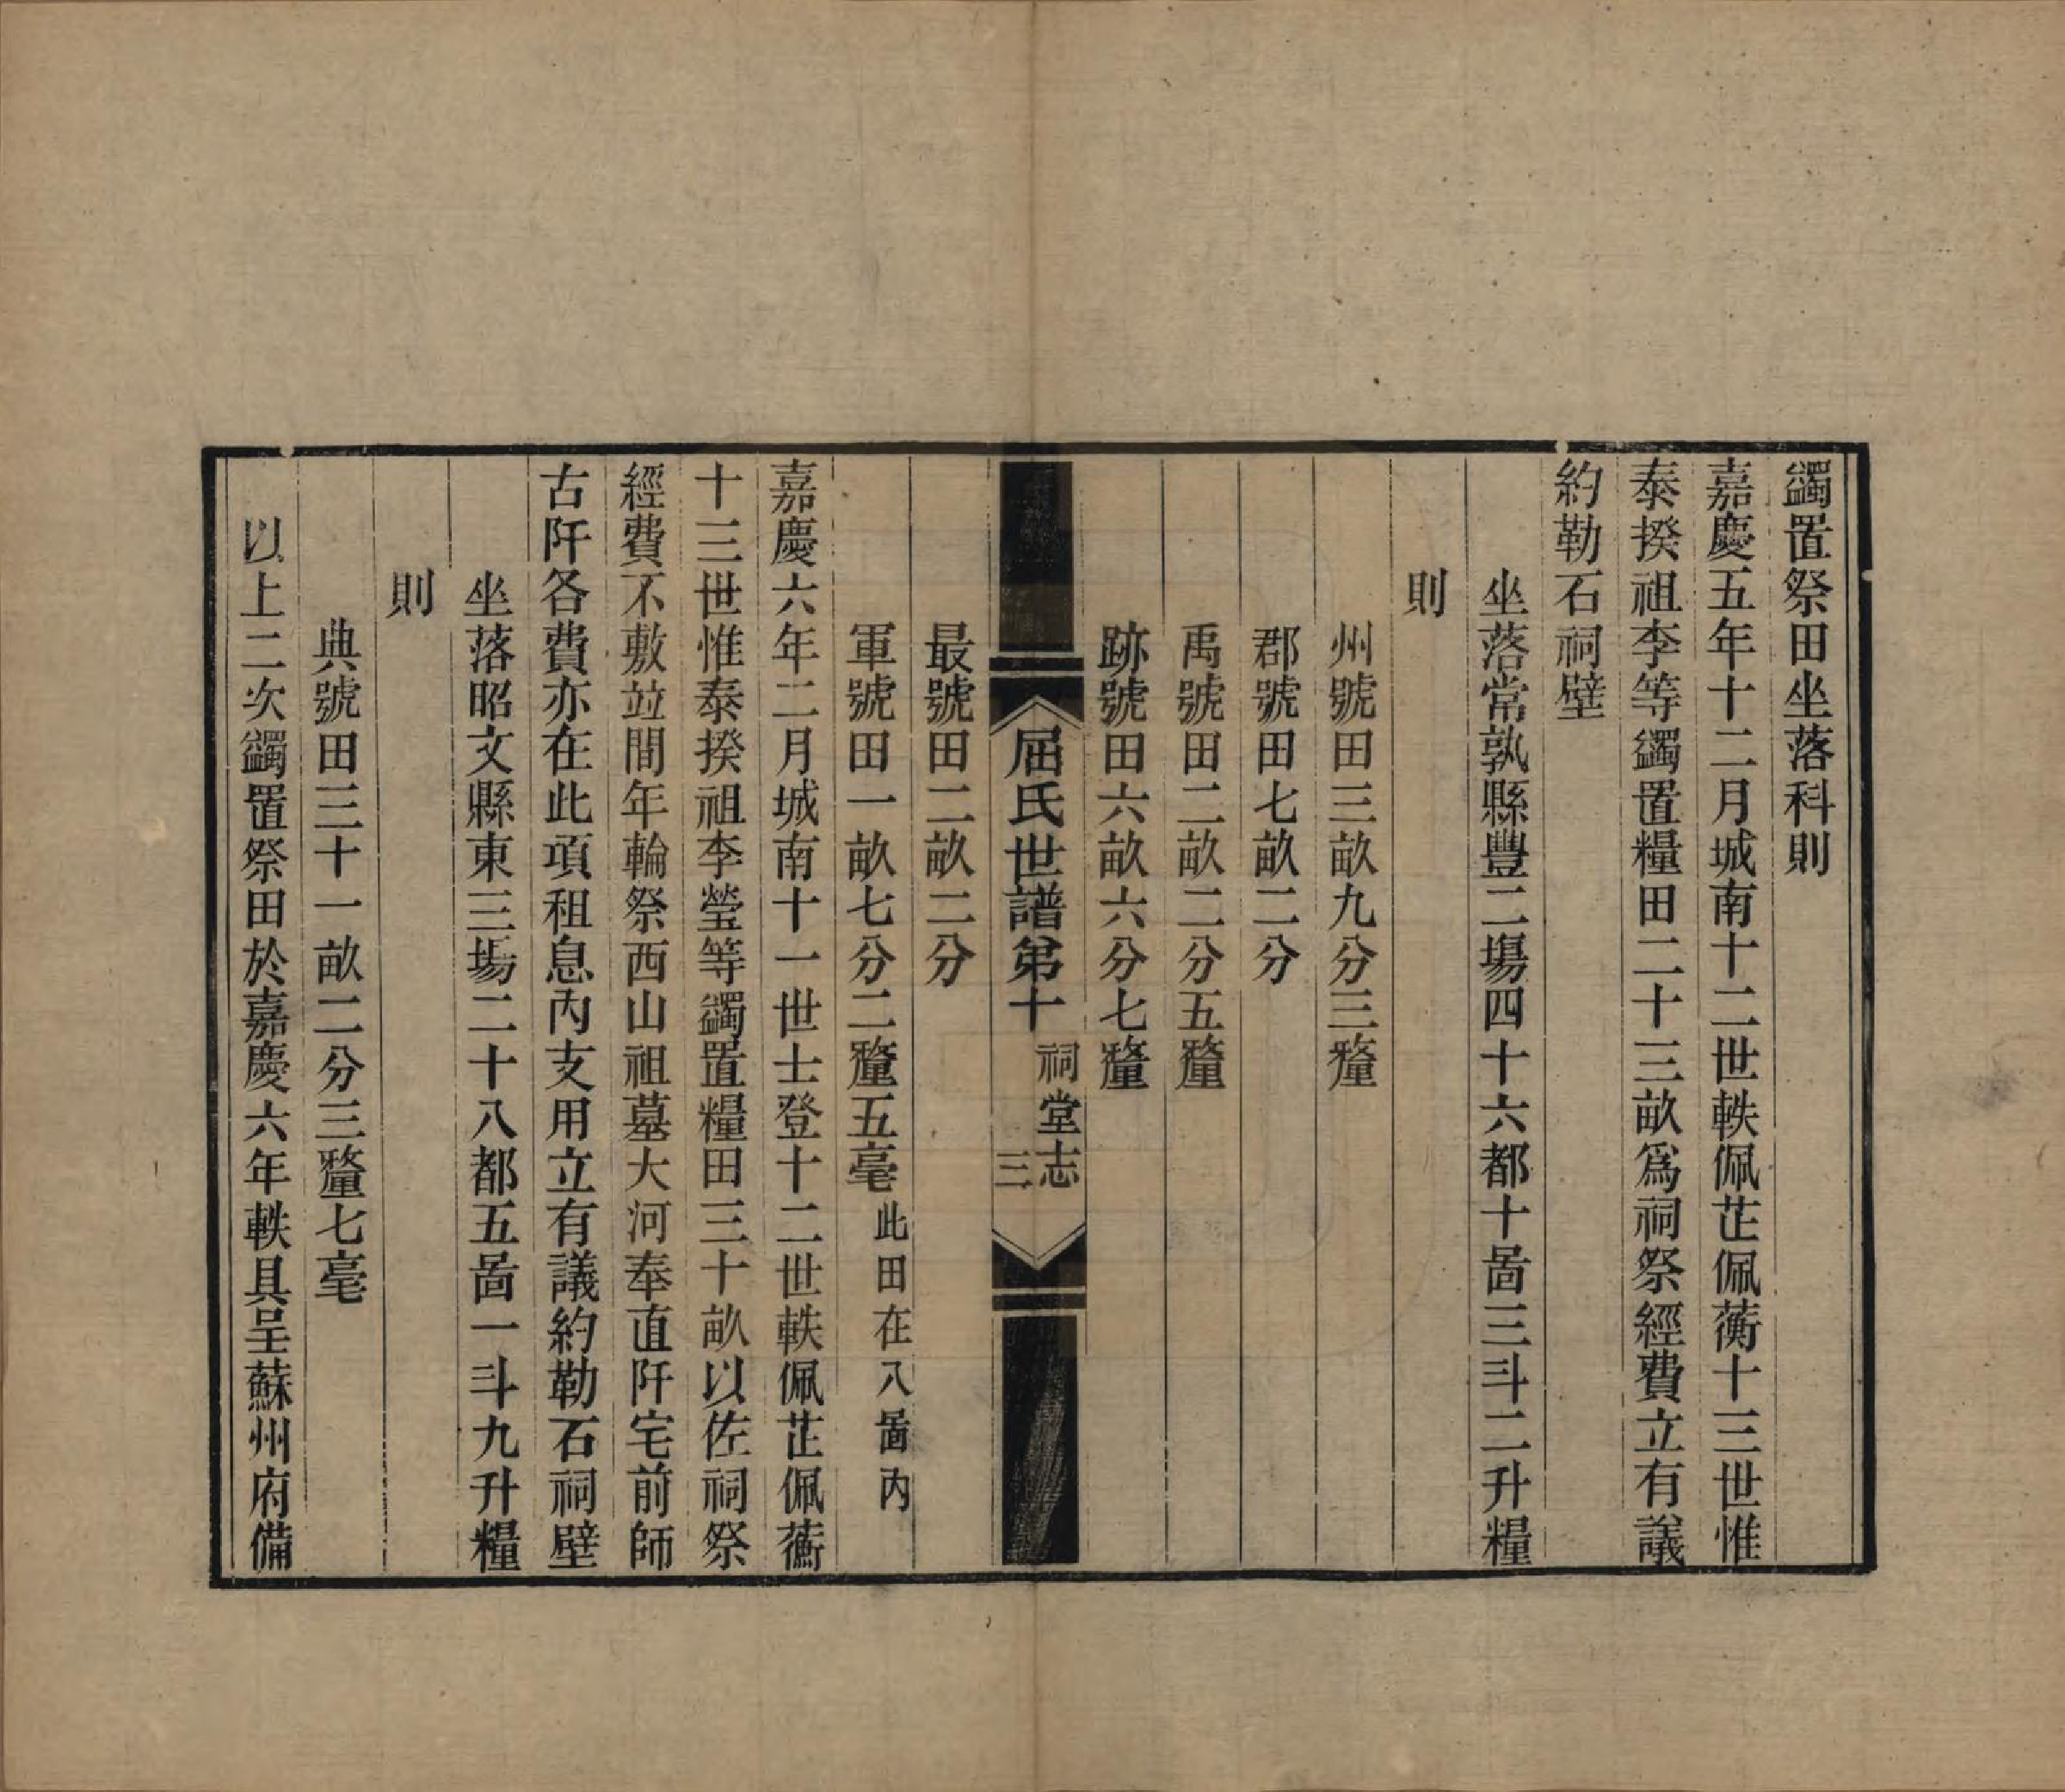 蠲置祭田坐落科則
嘉慶五年十二月城南十二世軼佩芷佩蘅十三世惟
泰揆祖李等蠲置糧田二十三畝爲祠祭經費立有議
約勒石祠壁
坐落常孰縣豐二場四十六都十啚三斗二升糧
則
州號田三畝九分三釐
郡號田七畝二分
禹號田二畝二分五釐
跡號田六畝六分七釐
屈氏世譜第十 祠堂志 三
最號田二畝二分
軍號田一畝七分二釐五毫此田在八啚內
嘉慶六年二月城南十一世士登十二世軼佩芷佩蘅
十三世惟泰揆祖李瑩等蠲置糧田三十畝以佐祠祭
經費不敷竝間年輪祭西山祖墓大河奉直阡宅前師
古阡各費亦在此項租息內支用立有議約勒石祠壁
坐落昭文縣東三場二十八都五啚一斗九升糧
則
典號田三十一畝二分三釐七毫
以上二次蠲置祭田於嘉慶六年軼具呈蘇州府備